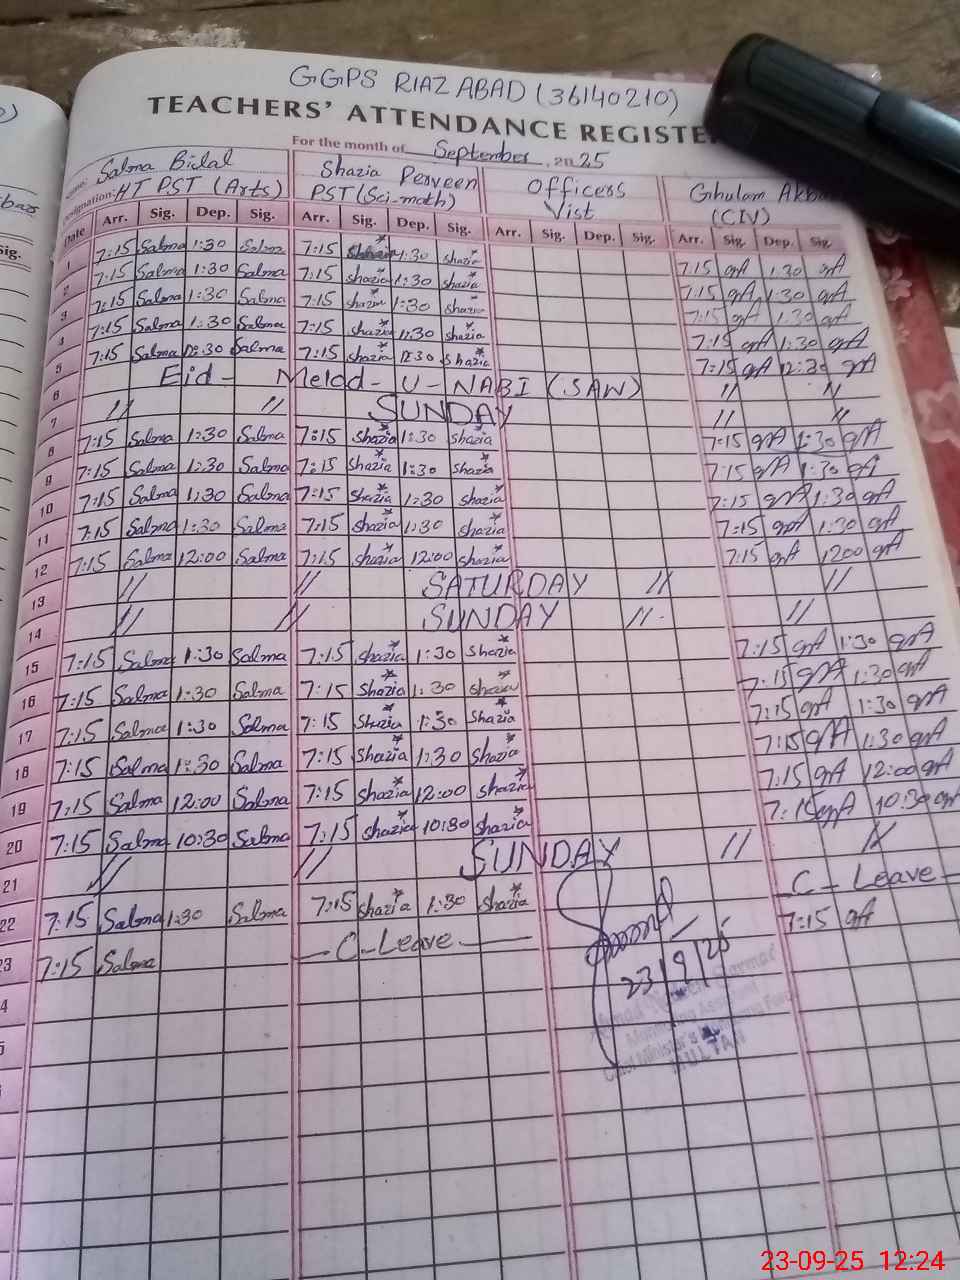 GGPS RIAZ ABAD (36140210)
TEACHERS' ATTENDANCE REGISTE
For the month of September, 2025
Salma Bilal Shazia Perveen Officers Ghulam Akba
Designation: HT PST (Arts) PST (Sci-math) Vist (CIV)
Date Arr. Sig. Dep. Sig. Arr. Sig. Dep. Sig. Arr. Sig. Dep. Sig. Arr. Sig. Dep. Sig.
1 7:15 Salma 1:30 Salma 7:15 Shazia 1:30 shazia 7:15 gA 1:30 gA
2 7:15 Salma 1:30 Salma 7:15 shazia 1:30 shazia 7:15 gA 1:30 gA
3 7:15 Salma 1:30 Salma 7:15 shazia 1:30 shazia 7:15 gA 1:30 gA
4 7:15 Salma 1:30 Salma 7:15 shazia 1:30 shazia 7:15 gA 1:30 gA
5 7:15 Salma 12:30 Salma 7:15 shazia 12:30 shazia 7:15 gA 12:30 gA
6 Eid - Melad - U - NABI (SAW) // //
7 // // SUNDAY // //
8 7:15 Salma 1:30 Salma 7:15 shazia 1:30 shazia 7:15 gA 1:30 gA
9 7:15 Salma 1:30 Salma 7:15 shazia 1:30 shazia 7:15 gA 1:30 gA
10 7:15 Salma 1:30 Salma 7:15 shazia 1:30 shazia 7:15 gA 1:30 gA
11 7:15 Salma 1:30 Salma 7:15 shazia 1:30 shazia 7:15 gA 1:30 gA
12 7:15 Salma 12:00 Salma 7:15 shazia 12:00 shazia 7:15 gA 1200 gA
13 // // SATURDAY // //
14 // // SUNDAY // //
15 7:15 Salma 1:30 Salma 7:15 shazia 1:30 shazia 7:15 gA 1:30 gA
16 7:15 Salma 1:30 Salma 7:15 Shazia 1:30 shazia 7:15 gA 1:30 gA
17 7:15 Salma 1:30 Salma 7:15 Shazia 1:30 Shazia 7:15 gA 1:30 gA
18 7:15 Salma 1:30 Salma 7:15 Shazia 1:30 Shazia 7:15 gA 1:30 gA
19 7:15 Salma 12:00 Salma 7:15 shazia 12:00 shazia 7:15 gA 12:00 gA
20 7:15 Salma 10:30 Salma 7:15 shazia 10:30 shazia 7:15 gA 10:30 gA
21 // // SUNDAY // //
22 7:15 Salma 1:30 Salma 7:15 shazia 1:30 shazia C - Leave -
23 7:15 Salma - C-Leave - 7:15 gA
23/9/25
Monitoring Assistant
Chief Minister's
MULTAN
23-09-25 12:24